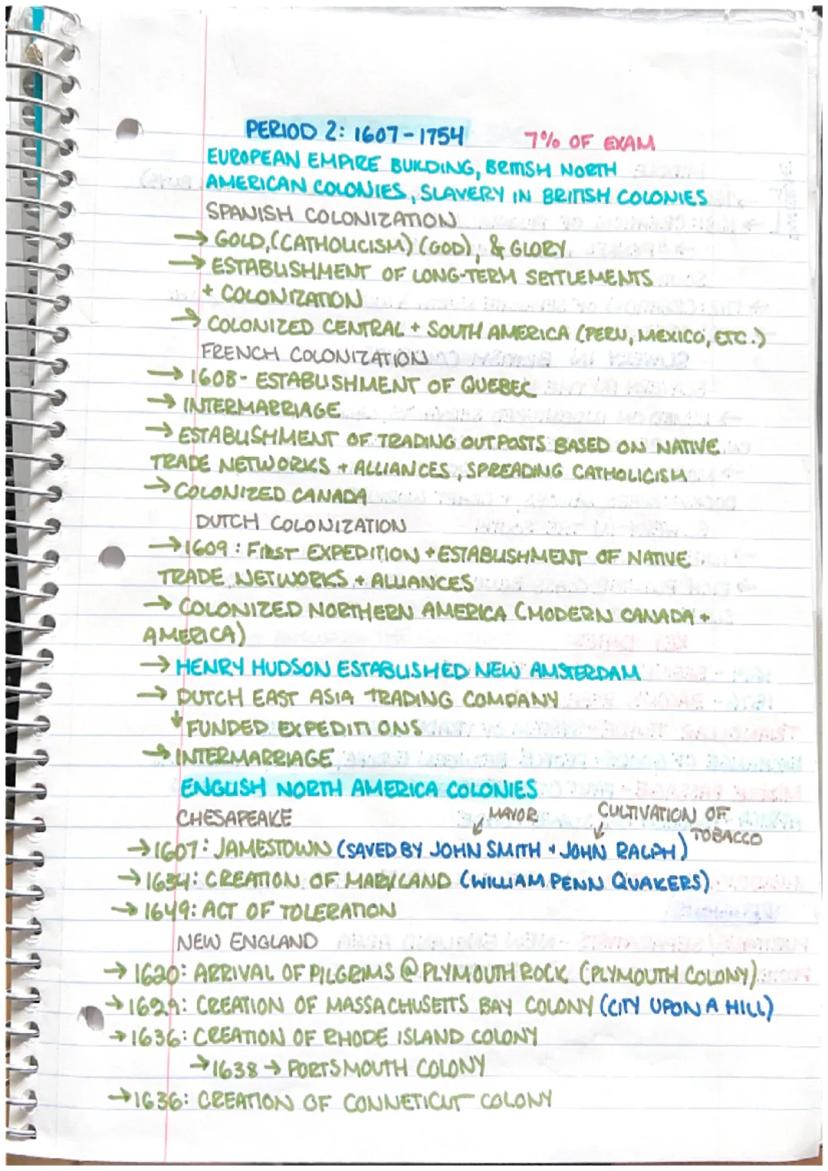 PERIOD 2: 1607-1754 7% OF EXAM
EUROPEAN EMPIRE BUILDING, BRITISH NORTH
AMERICAN COLONIES, SLAVERY IN BRITISH COLONIES
SPANISH COLONIZATION
→ GOLD, (CATHOLICISM) (GOD), & GLORY
→ ESTABLISHMENT OF LONG-TERM SETTLEMENTS
+ COLONIZATION
→ COLONIZED CENTRAL + SOUTH AMERICA (PERU, MEXICO, ETC.)
FRENCH COLONIZATION
→ 1608- ESTABLISHMENT OF QUEBEC
→ INTERMARRIAGE
→ ESTABLISHMENT OF TRADING OUTPOSTS BASED ON NATIVE
TRADE NETWORKS + ALLIANCES, SPREADING CATHOLICISM
→ COLONIZED CANADA
DUTCH COLONIZATION
→ 1609: FIRST EXPEDITION + ESTABLISHMENT OF NATIVE
TRADE NETWORKS + ALLIANCES
→ COLONIZED NORTHERN AMERICA (MODERN CANADA +
AMERICA)
→ HENRY HUDSON ESTABLISHED NEW AMSTERDAM
→ DUTCH EAST ASIA TRADING COMPANY
↓ FUNDED EXPEDITIONS
→ INTERMARRIAGE
ENGLISH NORTH AMERICA COLONIES
CHESAPEAKE MAYOR CULTIVATION OF
TOBACCO
→ 1607: JAMESTOWN (SAVED BY JOHN SMITH + JOHN RALPH)
→ 1634: CREATION OF MARYLAND (WILLIAM PENN QUAKERS)
→ 1649: ACT OF TOLERATION
NEW ENGLAND
→ 1620: ARRIVAL OF PILGRIMS @ PLYMOUTH ROCK (PLYMOUTH COLONY)
→ 1629: CREATION OF MASSACHUSETTS BAY COLONY (CITY UPON A HILL)
→ 1636: CREATION OF RHODE ISLAND COLONY
→ 1638 → PORTSMOUTH COLONY
→ 1636: CREATION OF CONNETICUT COLONY